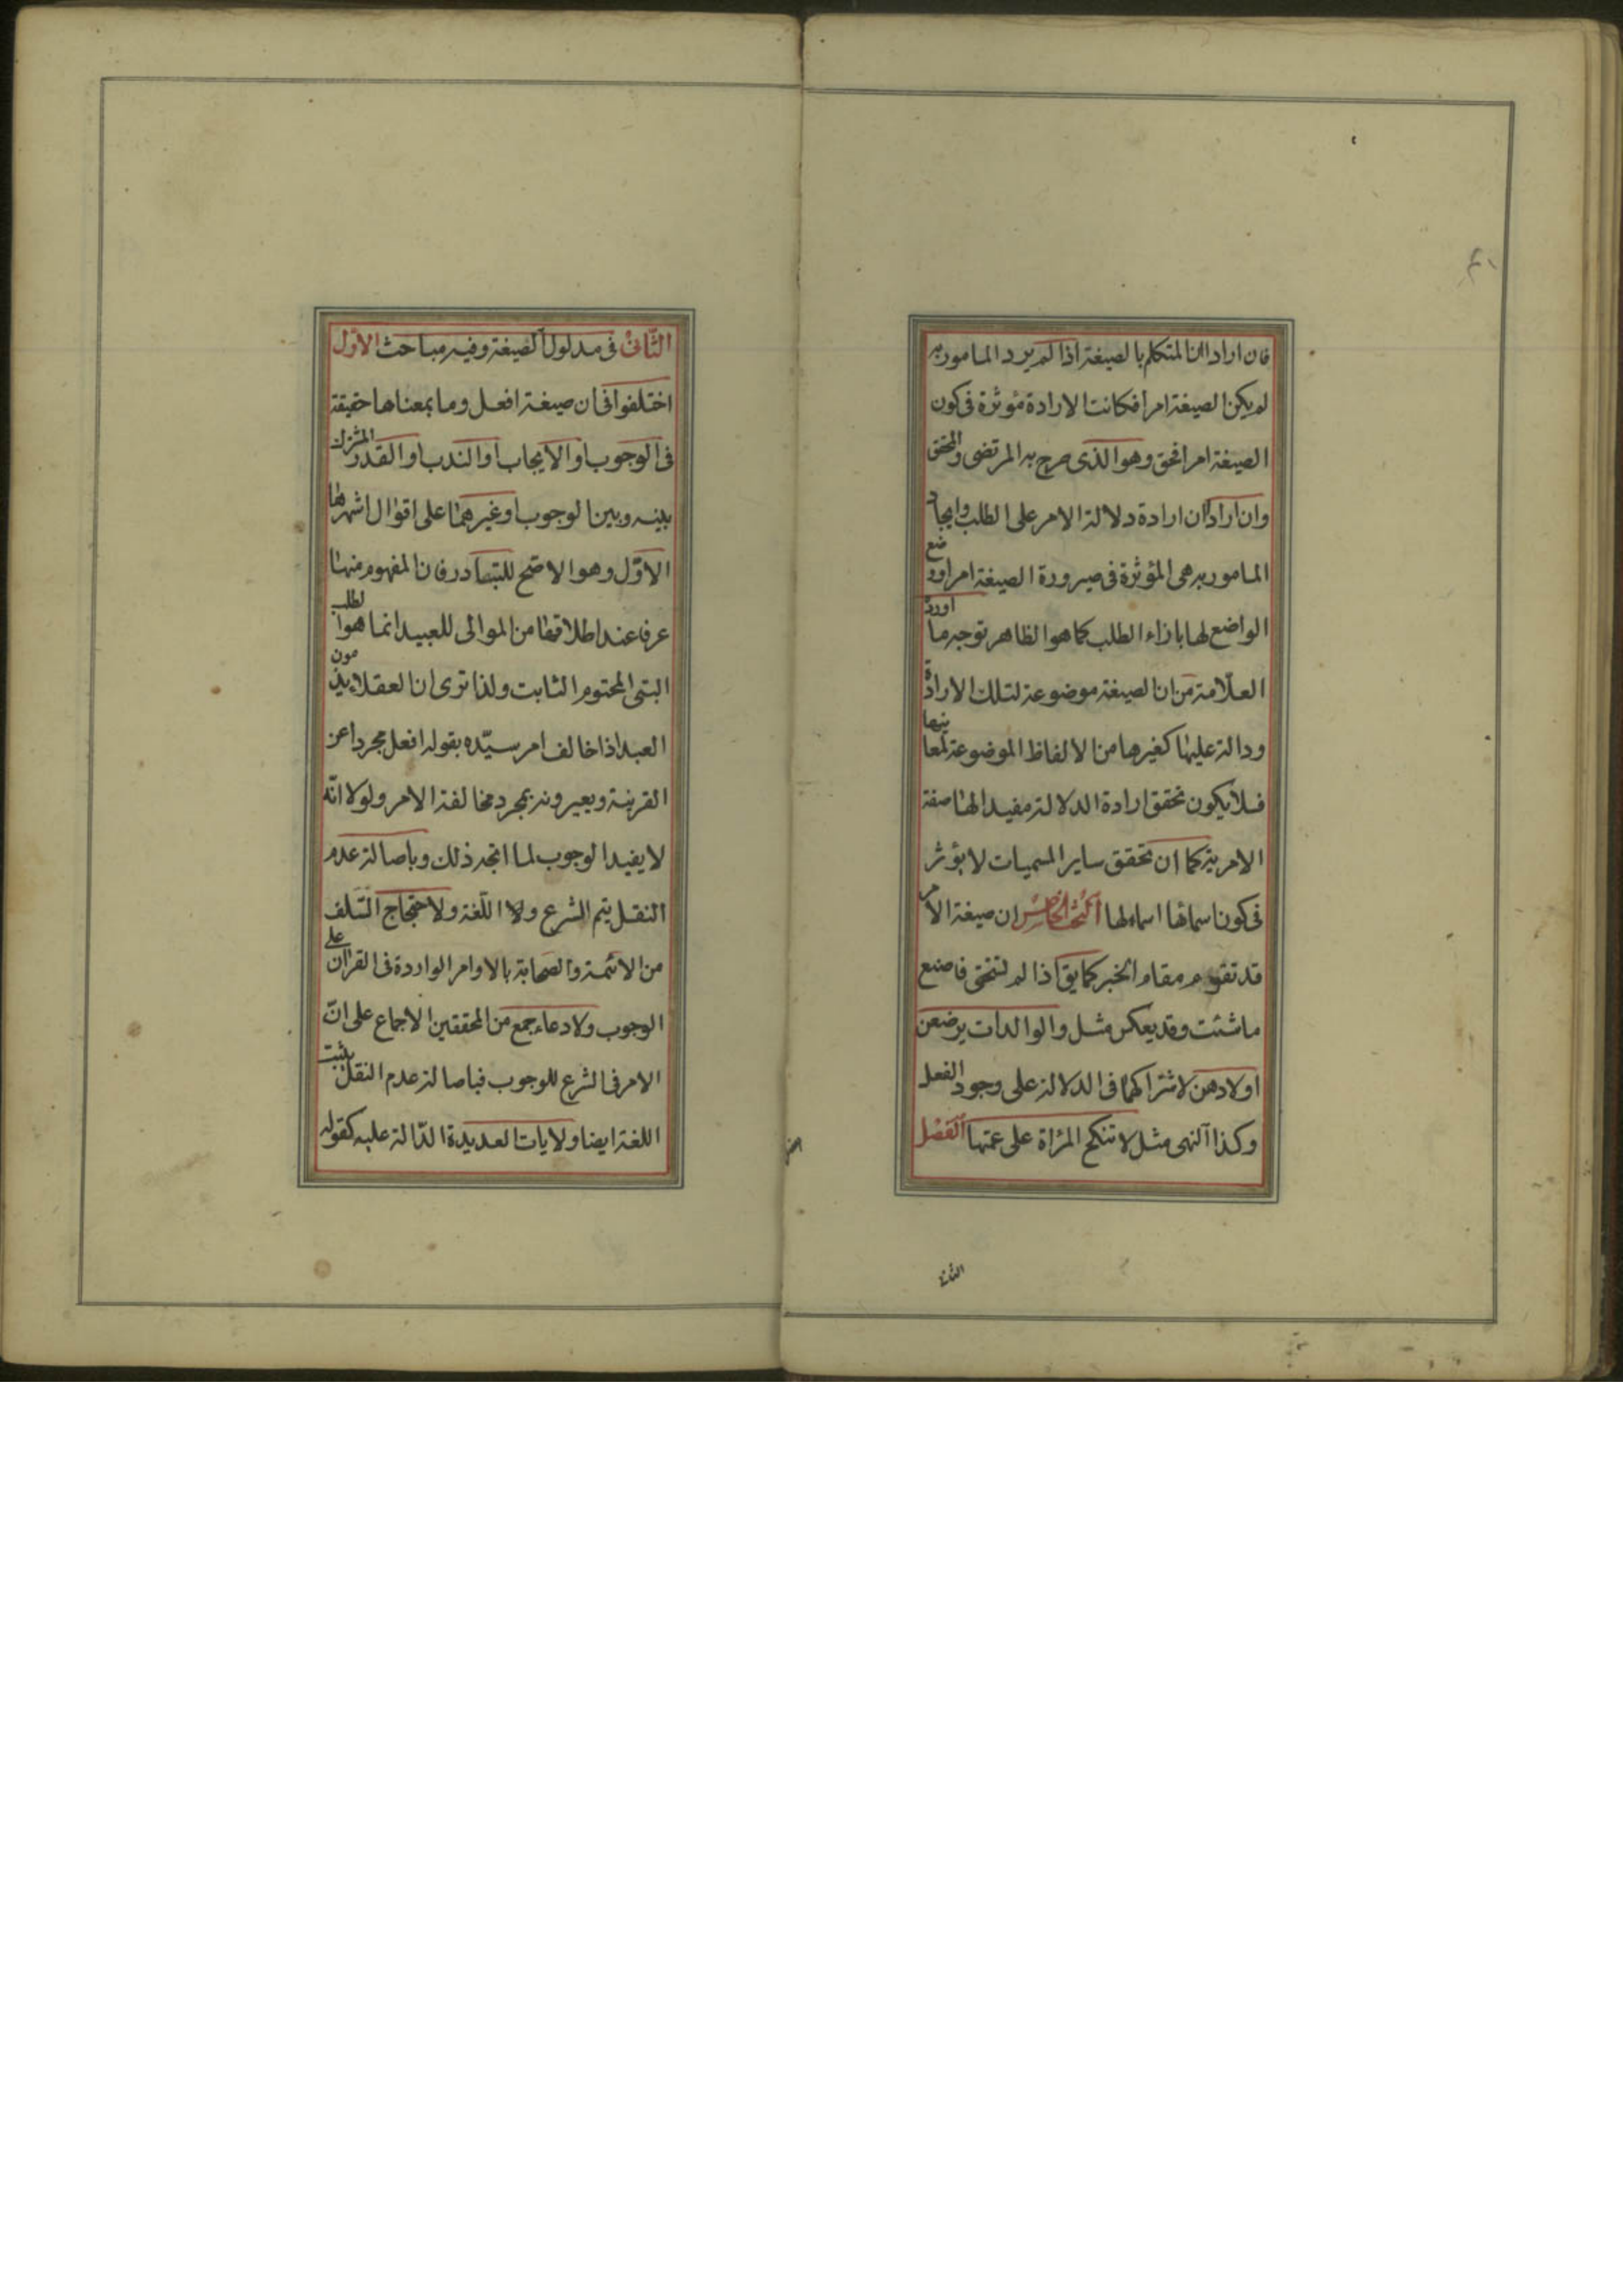 فان اراد ان المتكلم بالصيغة اذا لم يرد المامور به
لم يكن الصيغة امرا فكانت الارادة مؤثرة فى كون
الصيغة امرا فحق وهو الذى صرح به المرتضى والمحقق
وان اراد ان ارادة دلالة الامر على الطلب وايجاد
المامور به هى المؤثرة فى صيرورة الصيغة امرا ورد وضع
الواضع لها بازاء الطلب كما هو الظاهر توجه ما اورده
العلامة من ان الصيغة موضوعة لتلك الارادة
ودالة عليها كغيرها من الالفاظ الموضوعة لمعانيها
فلا يكون تحقق ارادة الدلالة مفيدا لها صفة
الامرية كما ان تحقق ساير المسميات لا يؤثر
فى كون اسمائها اسماء لها البحث الخامس ان صيغة الامر
قد تقوم مقام الخبر كما يق اذا لم تستحى فاصنع
ما شئت وقد يعكس مثل والوالدات يرضعن
اولادهن لاشتراكهما فى الدلالة على وجود الفعل
وكذا النهى مثل لا تنكح المرأة على عمتها الفصل
الثانى
الثانى فى مدلول الصيغة وفيه مباحث الاول
اختلفوا فى ان صيغة افعل وما بمعناها حقيقة
فى الوجوب او الايجاب او الندب او القدر المشترك
بينه وبين الوجوب او غيرهما على اقوال اشهرها
الاول وهو الاصح للتبادر فان المفهوم منها
عرفا عند اطلاقها من الموالى للعبيد انما هو الطلب
البتى المحتوم الثابت ولذا ترى ان العقلاء يذمون
العبد اذا خالف امر سيده بقوله افعل مجردا عن
القرينة ويعيرونه بمجرد مخالفة الامر ولولا انه
لا يفيد الوجوب لما اتجه ذلك وباصالة عدم
النقل يتم الشرع ولا اللغة ولاحتجاج السلف
من الائمة والصحابة بالاوامر الواردة فى القران على
الوجوب ولادعاء جمع من المحققين الاجماع على ان
الامر فى الشرع للوجوب فباصالة عدم النقل يثبت
اللغة ايضا ولايات العديدة الدالة عليه كقوله